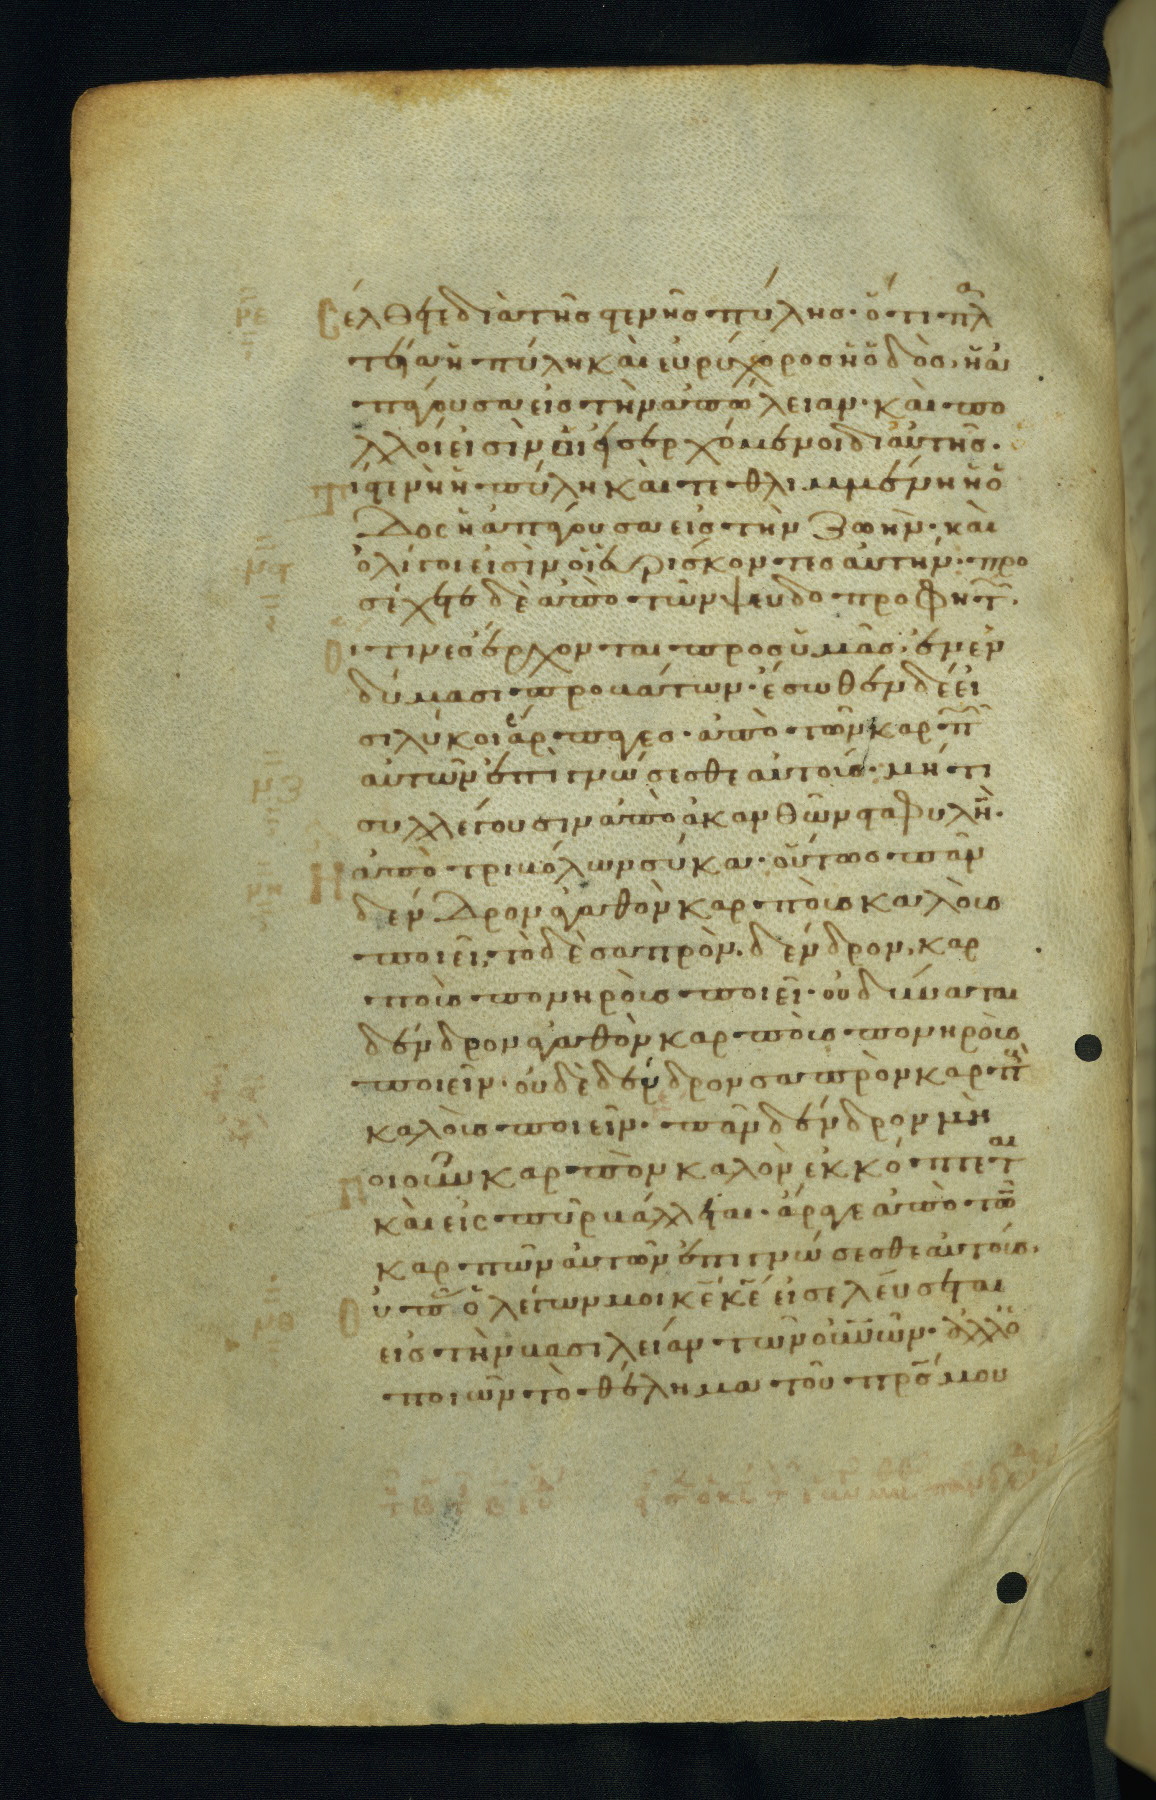 Εἰσέλθετε διὰ τῆς στενῆς πύλης· ὅτι πλα
τεῖα ἡ πύλη καὶ εὐρύχορος ἡ ὁδὸς, ἡ ἀ
πάγουσα εἰς τὴν ἀπώλειαν· καὶ πο
λλοί εἰσὶν οἱ εἰσερχόμενοι δι αὐτῆς·
Τί στενὴ ἡ πύλη καὶ τεθλιμμένη ἡ ὁ
δος ἡ ἀπάγουσα εἰς τὴν ζωὴν· καὶ
ὀλίγοι εἰσὶν οἱ εὑρίσκοντες αὐτήν· προ
σέχετε δὲ ἀπὸ τῶν ψευδοπροφητ
Οἵτινες ἔρχονται προς ὑμᾶς, ἐν ἐν
δύμασι προβάτων· ἔσωθεν δέ εἰ
σι λύκοι ἅρπαγες· ἀπὸ τῶν καρπ
αὐτῶν ἐπιγνώσεσθε αὐτούς· μήτι
συλλέγουσιν ἀπὸ ἀκανθῶν σταφυλὴν·
Ἢ ἀπὸ τριβόλων σύκα· οὕτως πᾶν
δένδρον ἀγαθὸν καρποὺς καλοὺς
ποιεῖ, τὸ δὲ σαπρὸν, δένδρον, καρ
ποὺς πονηροὺς ποιεῖ· οὐ δύναται
δένδρον ἀγαθὸν καρποὺς πονηροὺς
ποιεῖν· οὐδὲ δένδρον σαπρὸν καρπ
καλοὺς ποιεῖν· πᾶν δένδρον μὴ
Ποιοῦν καρπὸν καλὸν ἐκκόπτεται
καὶ εἰς πῦρ βάλλεται· ἄραγε ἀπὸ τῶν
καρπῶν αὐτῶν ἐπιγνώσεσθε αὐτούς·
Οὐ πᾶς ὁ λέγων μοι κε κε εἰσελεύσεται
εἰς τὴν βασιλείαν τῶν οὐνων· ἀλλ ὁ
ποιῶν τὸ θέλημα τοῦ πρς μου